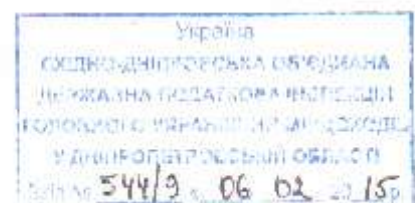 Україна
СХІДНО-ДНІПРОВСЬКА ОБ'ЄДНАНА
ДЕРЖАВНА ПОДАТКОВА ІНСПЕКЦІЯ
ГОЛОВНОГО УПРАВЛІННЯ
У ДНІПРОПЕТРОВСЬКІЙ ОБЛАСТІ
544/9 06 02 2015р